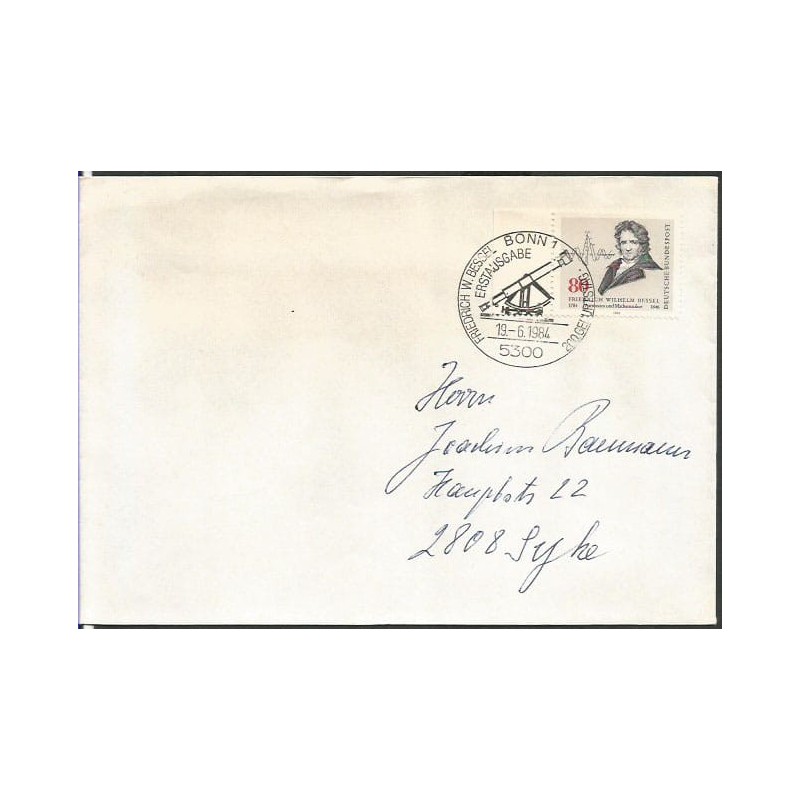 FRIEDRICH W. BESSEL BONN 1
ERSTAUSGABE
200. GEBURTSTAG
19.-6.1984
5300
80
DEUTSCHE BUNDESPOST
FRIEDRICH WILHELM BESSEL
1784 Astronom und Mathematiker 1846
Herrn
Joachim Baumann
Hauptstr 22
2808 Syke